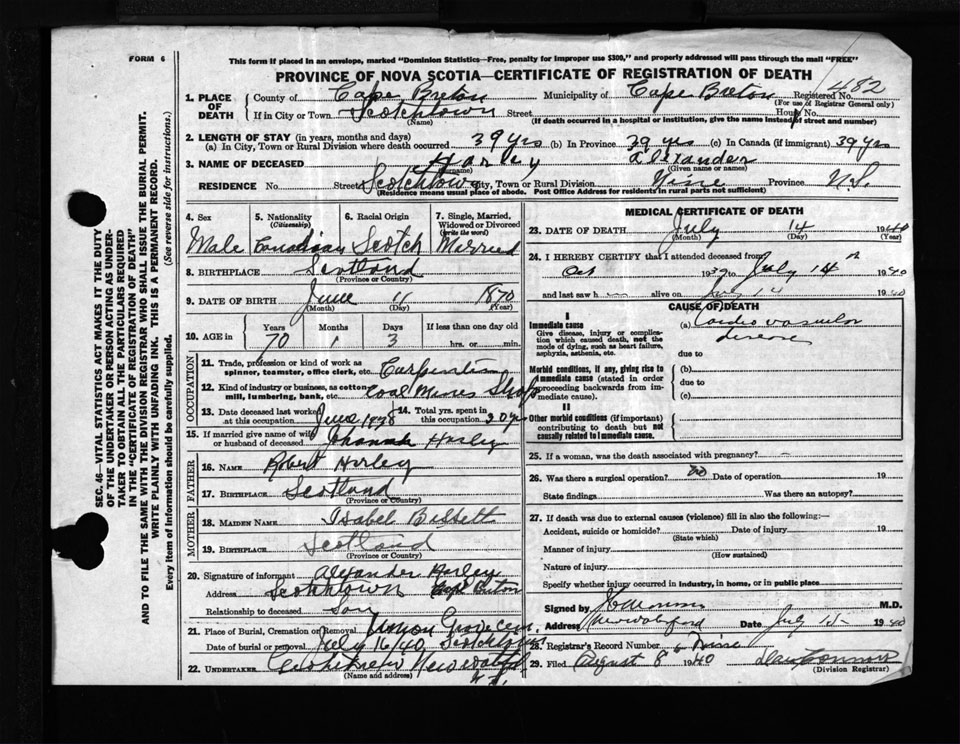 FORM 6
This form if placed in an envelope, marked "Dominion Statistics—Free, penalty for improper use $300," and properly addressed will pass through the mail "FREE"
PROVINCE OF NOVA SCOTIA—CERTIFICATE OF REGISTRATION OF DEATH
482
1. PLACE OF DEATH
County of Cape Breton Municipality of Cape Breton Registered No.
(For use of Registrar General only)
If in City or Town Scotchtown Street House
(Name) (If death occurred in a hospital or institution, give the name instead of street and number)
2. LENGTH OF STAY (in years, months and days)
(a) In City, Town or Rural Division where death occurred 39 yrs (b) In Province 39 yrs (c) In Canada (if immigrant) 39 yrs
3. NAME OF DECEASED Harley Alexander
(Surname) (Given name or names)
RESIDENCE No. Street Scotchtown City, Town or Rural Division Nine Province N.S.
(Residence means usual place of abode. Post Office Address for residents in rural parts not sufficient)
4. Sex Male
5. Nationality (Citizenship) Canadian
6. Racial Origin Scotch
7. Single, Married, Widowed or Divorced (write the word) Married
8. BIRTHPLACE Scotland
(Province or Country)
9. DATE OF BIRTH June 11 1870
(Month) (Day) (Year)
10. AGE in Years 70 Months 1 Days 3 If less than one day old
hrs. or min.
OCCUPATION
11. Trade, profession or kind of work as
spinner, teamster, office clerk, etc.
12. Kind of industry or business, as cotton
mill, lumbering, bank, etc. Coal Mines Shop
13. Date deceased last worked
at this occupation June
14. Total yrs. spent in
this occupation
15. If married give name of wife
or husband of deceased Johannah Harley
FATHER
16. NAME Robert Harley
17. BIRTHPLACE Scotland
(Province or Country)
MOTHER
18. MAIDEN NAME Isabel Bissett
19. BIRTHPLACE Scotland
(Province or Country)
20. Signature of informant Alexander Harley
Address Scotchtown Cape Breton
Relationship to deceased Son
21. Place of Burial, Cremation or Removal Union Grove Cem
Date of burial or removal July 16/40 Scotchtown
22. UNDERTAKER New Waterford
(Name and address) N.S.
MEDICAL CERTIFICATE OF DEATH
23. DATE OF DEATH July 14 1940
(Month) (Day) (Year)
24. I HEREBY CERTIFY that I attended deceased from
Oct 1939 to July 14th 1940
and last saw h alive on 14 1940
CAUSE OF DEATH
I
Immediate cause
Give disease, injury or complication which caused death, not the mode of dying, such as heart failure, asphyxia, asthenia, etc.
(a) Cardio vascular
disease
due to
Morbid conditions, if any, giving rise to immediate cause (stated in order proceeding backwards from immediate cause).
(b)
due to
(c)
II
Other morbid conditions (if important) contributing to death but not causally related to immediate cause.
25. If a woman, was the death associated with pregnancy?
26. Was there a surgical operation? no Date of operation 19
State findings Was there an autopsy?
27. If death was due to external causes (violence) fill in also the following:—
Accident, suicide or homicide? Date of injury 19
(State which)
Manner of injury
(How sustained)
Nature of injury
Specify whether injury occurred in industry, in home, or in public place
Signed by M.D.
Address New Waterford Date July 15 1940
28. Registrar's Record Number Nine
29. Filed August 8 1940
(Division Registrar)
SEC. 46—VITAL STATISTICS ACT MAKES IT THE DUTY
OF THE UNDERTAKER OR PERSON ACTING AS UNDER-
TAKER TO OBTAIN ALL THE PARTICULARS REQUIRED
IN THE "CERTIFICATE OF REGISTRATION OF DEATH"
AND TO FILE THE SAME WITH THE DIVISION REGISTRAR WHO SHALL ISSUE THE BURIAL PERMIT.
WRITE PLAINLY WITH UNFADING INK. THIS IS A PERMANENT RECORD.
Every item of Information should be carefully supplied. (See reverse side for instructions.)